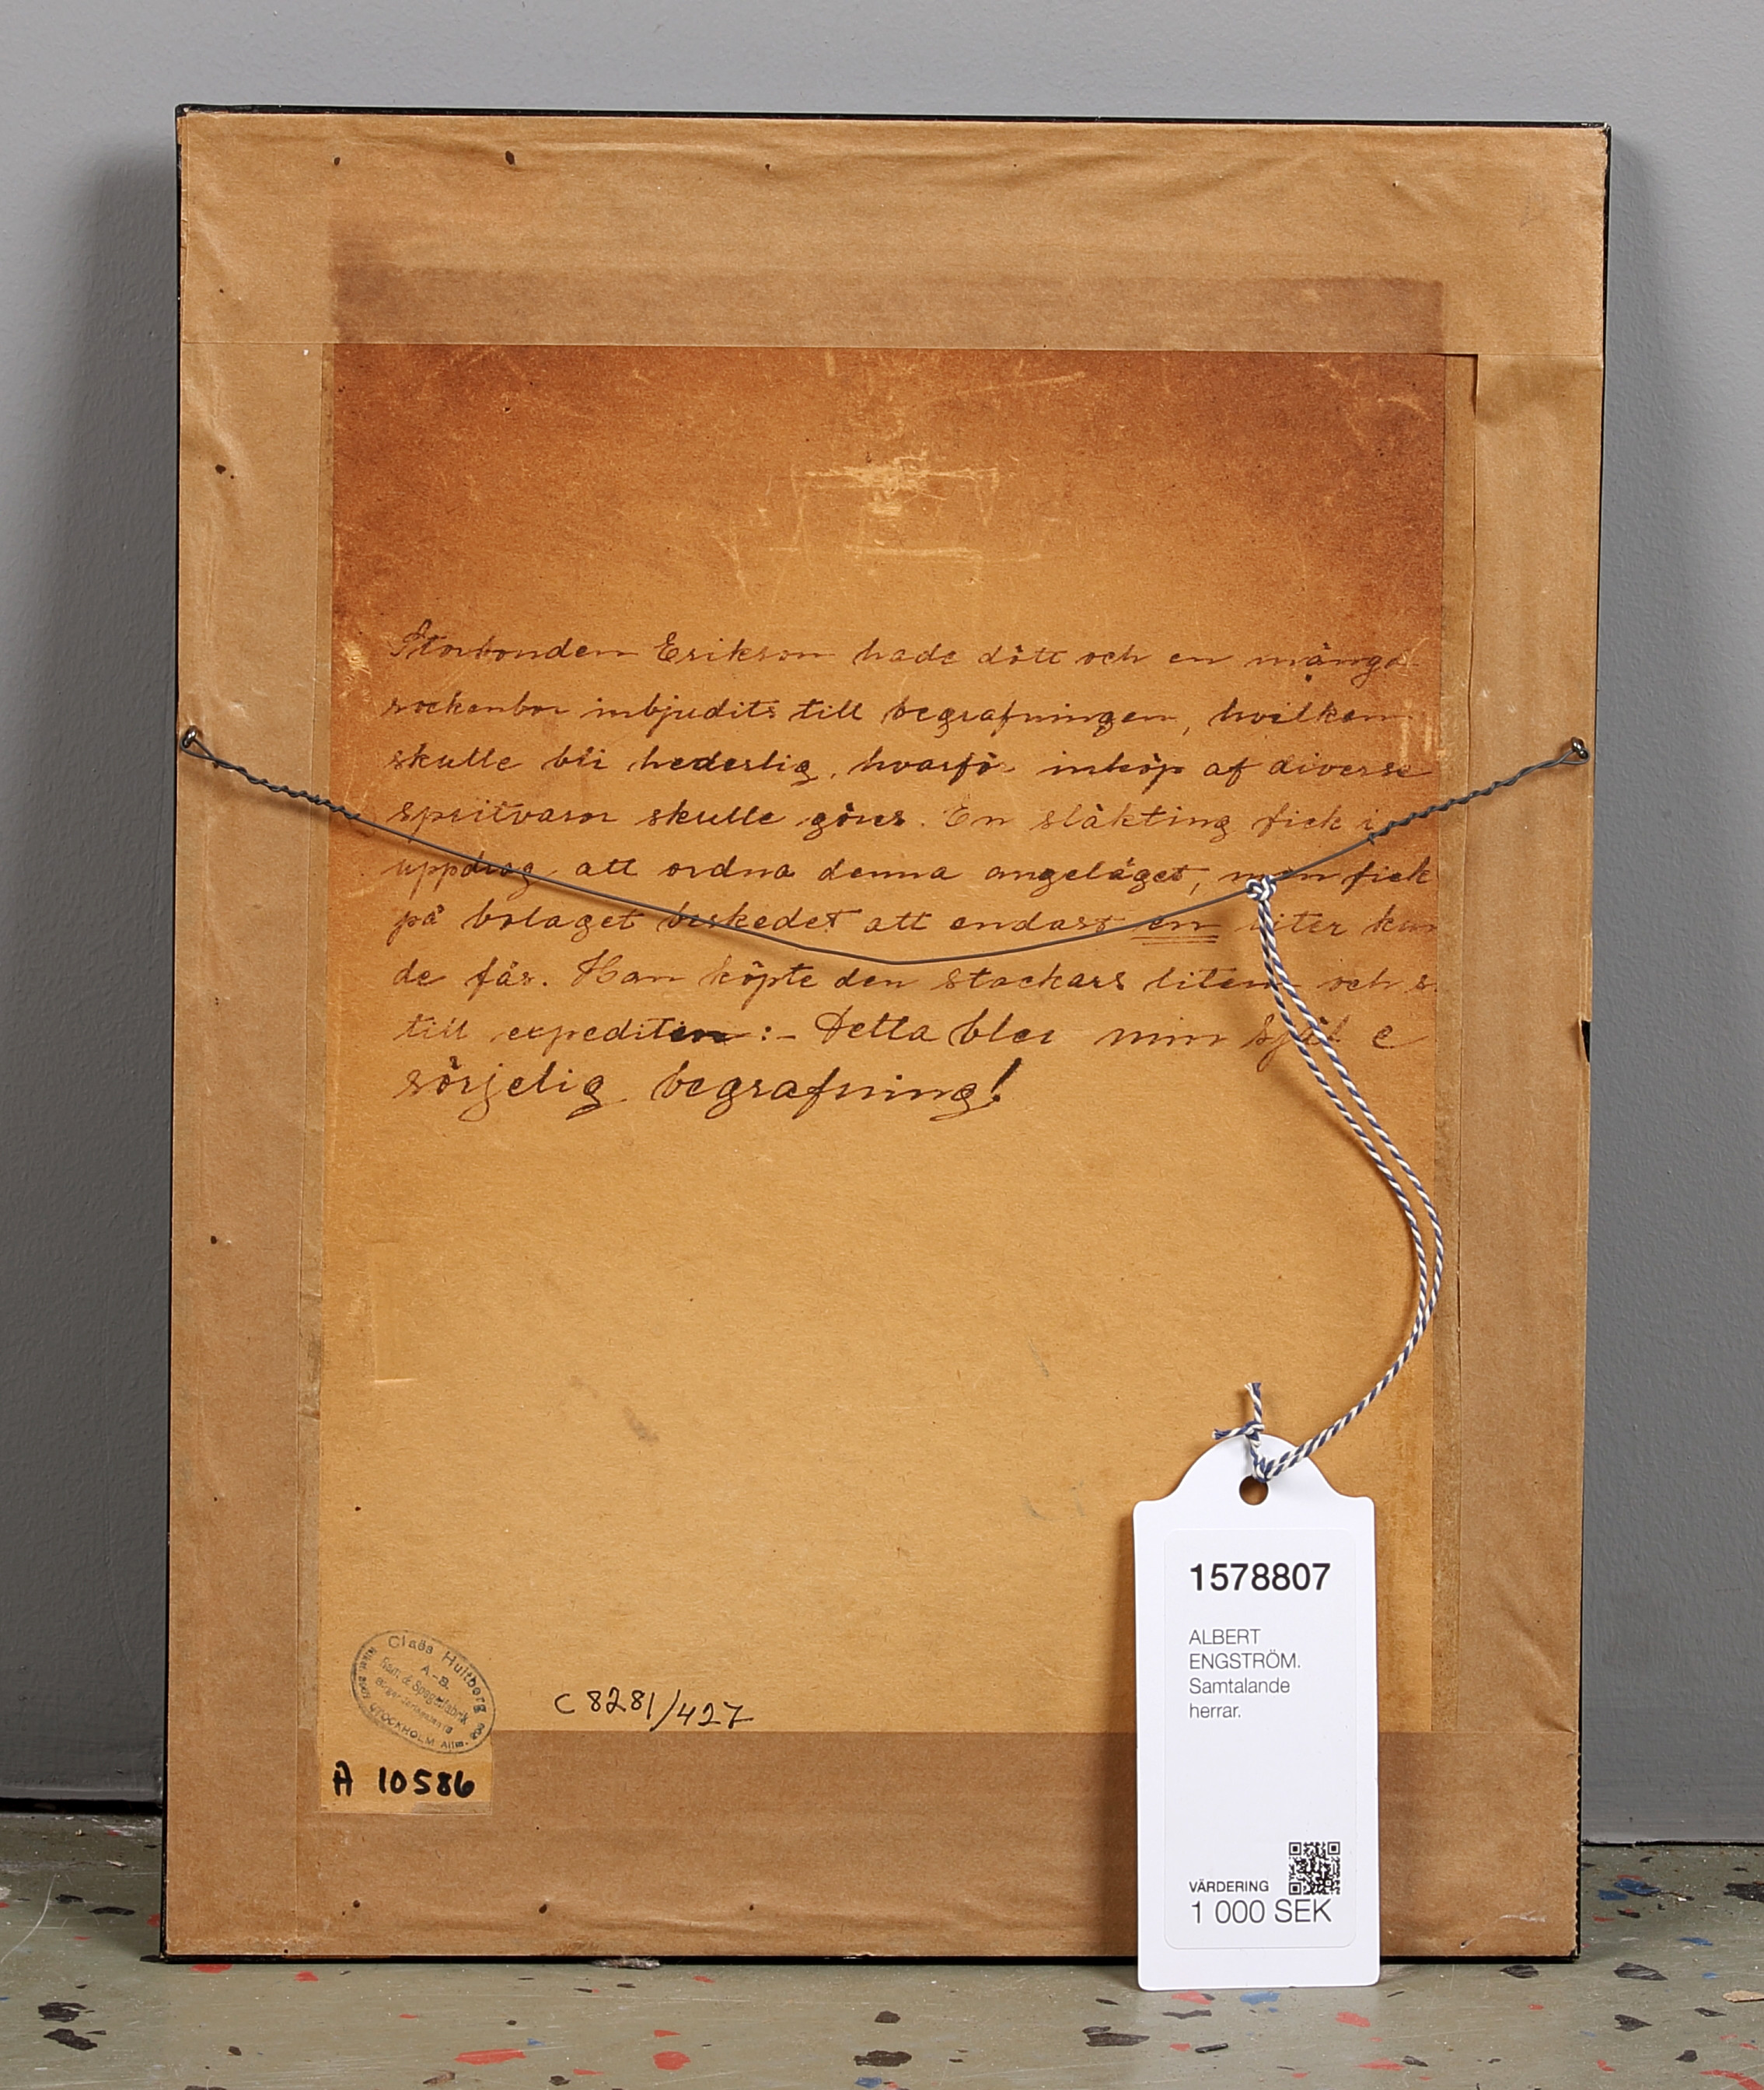 Storbonden Erikson hade dött och en mängd
sockenbor inbjudits till begrafningen, hvilken
skulle bli hederlig, hvarför inköp af diverse
spritvaror skulle göras. En släkting fick i
uppdrag att ordna denna angeläget, men fick
på bolaget beskedet att endast en liter kun
de fås. Han köpte den stackars litern och s
till expediten:- Detta blev min själ e
sörjelig begrafning!
Claës Hultberg
A.-B.
Ram & Spegelfabrik
STOCKHOLM Allm.
C 8281/427
A 10586
1578807
ALBERT
ENGSTRÖM.
Samtalande
herrar.
VÄRDERING
1 000 SEK